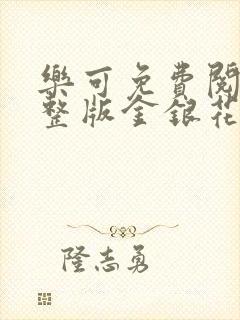 樂可免費閱
整版金銀花
隆志勇